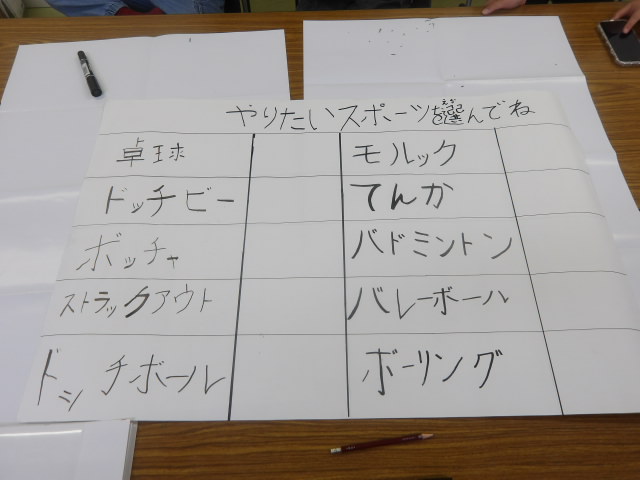 やりたいスポーツを選んでね
卓球
モルック
ドッチビー
てんか
ボッチャ
バドミントン
ストラックアウト
バレーボール
ドッチボール
ボーリング